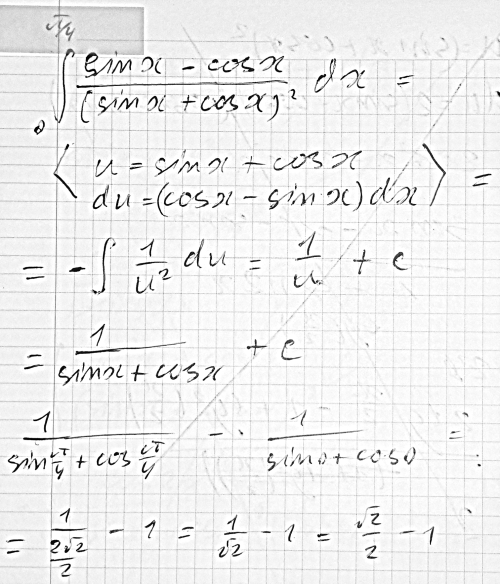 ∫₀^{π/4} (sin x − cos x)/(sin x + cos x)² dx =
⟨ u = sin x + cos x
du = (cos x − sin x) dx ⟩ =
= − ∫ 1/u² du = 1/u + c
= 1/(sin x + cos x) + c
1/(sin π/4 + cos π/4) − 1/(sin 0 + cos 0) =
= 1/(2√2/2) − 1 = 1/√2 − 1 = √2/2 − 1